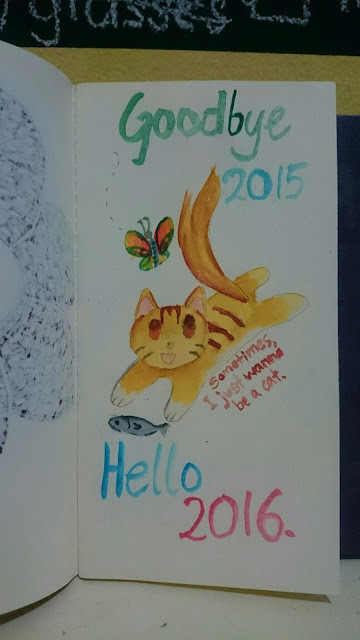 glasses
Goodbye
2015
Sometimes,
I just wanna
be a cat.
Hello
2016.